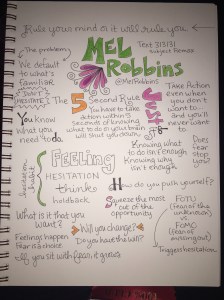 Rule your mind or it will rule you.
The problem:
We default
to what's
familiar
MEL
RObbINS
@MelRobbins
Text 313131
DON'T
HESITATE!
You know
what you
need to do
The 5 Second Rule
You have to take
action within 5
seconds of knowing
what to do or your brain
will shut you down
Just
Take Action
even when you
don't want
to and
you'll never
want
to
FEELING
HESITATION
thinks
holdback
hesitation
habit
Knowing what
to do isn't enough
Knowing why
isn't enough
Does
fear
stop
you?
How do you push yourself?
Squeeze the most
out of the
opportunity
What is it that you
want?
Feelings happen
Fear is a choice
If you sit with fear, it grows
Will you change?
Do you have the will?
FOTU
(fear of the
unknown)
vs
FOMO
(fear of
missing out)
Triggers hesitation